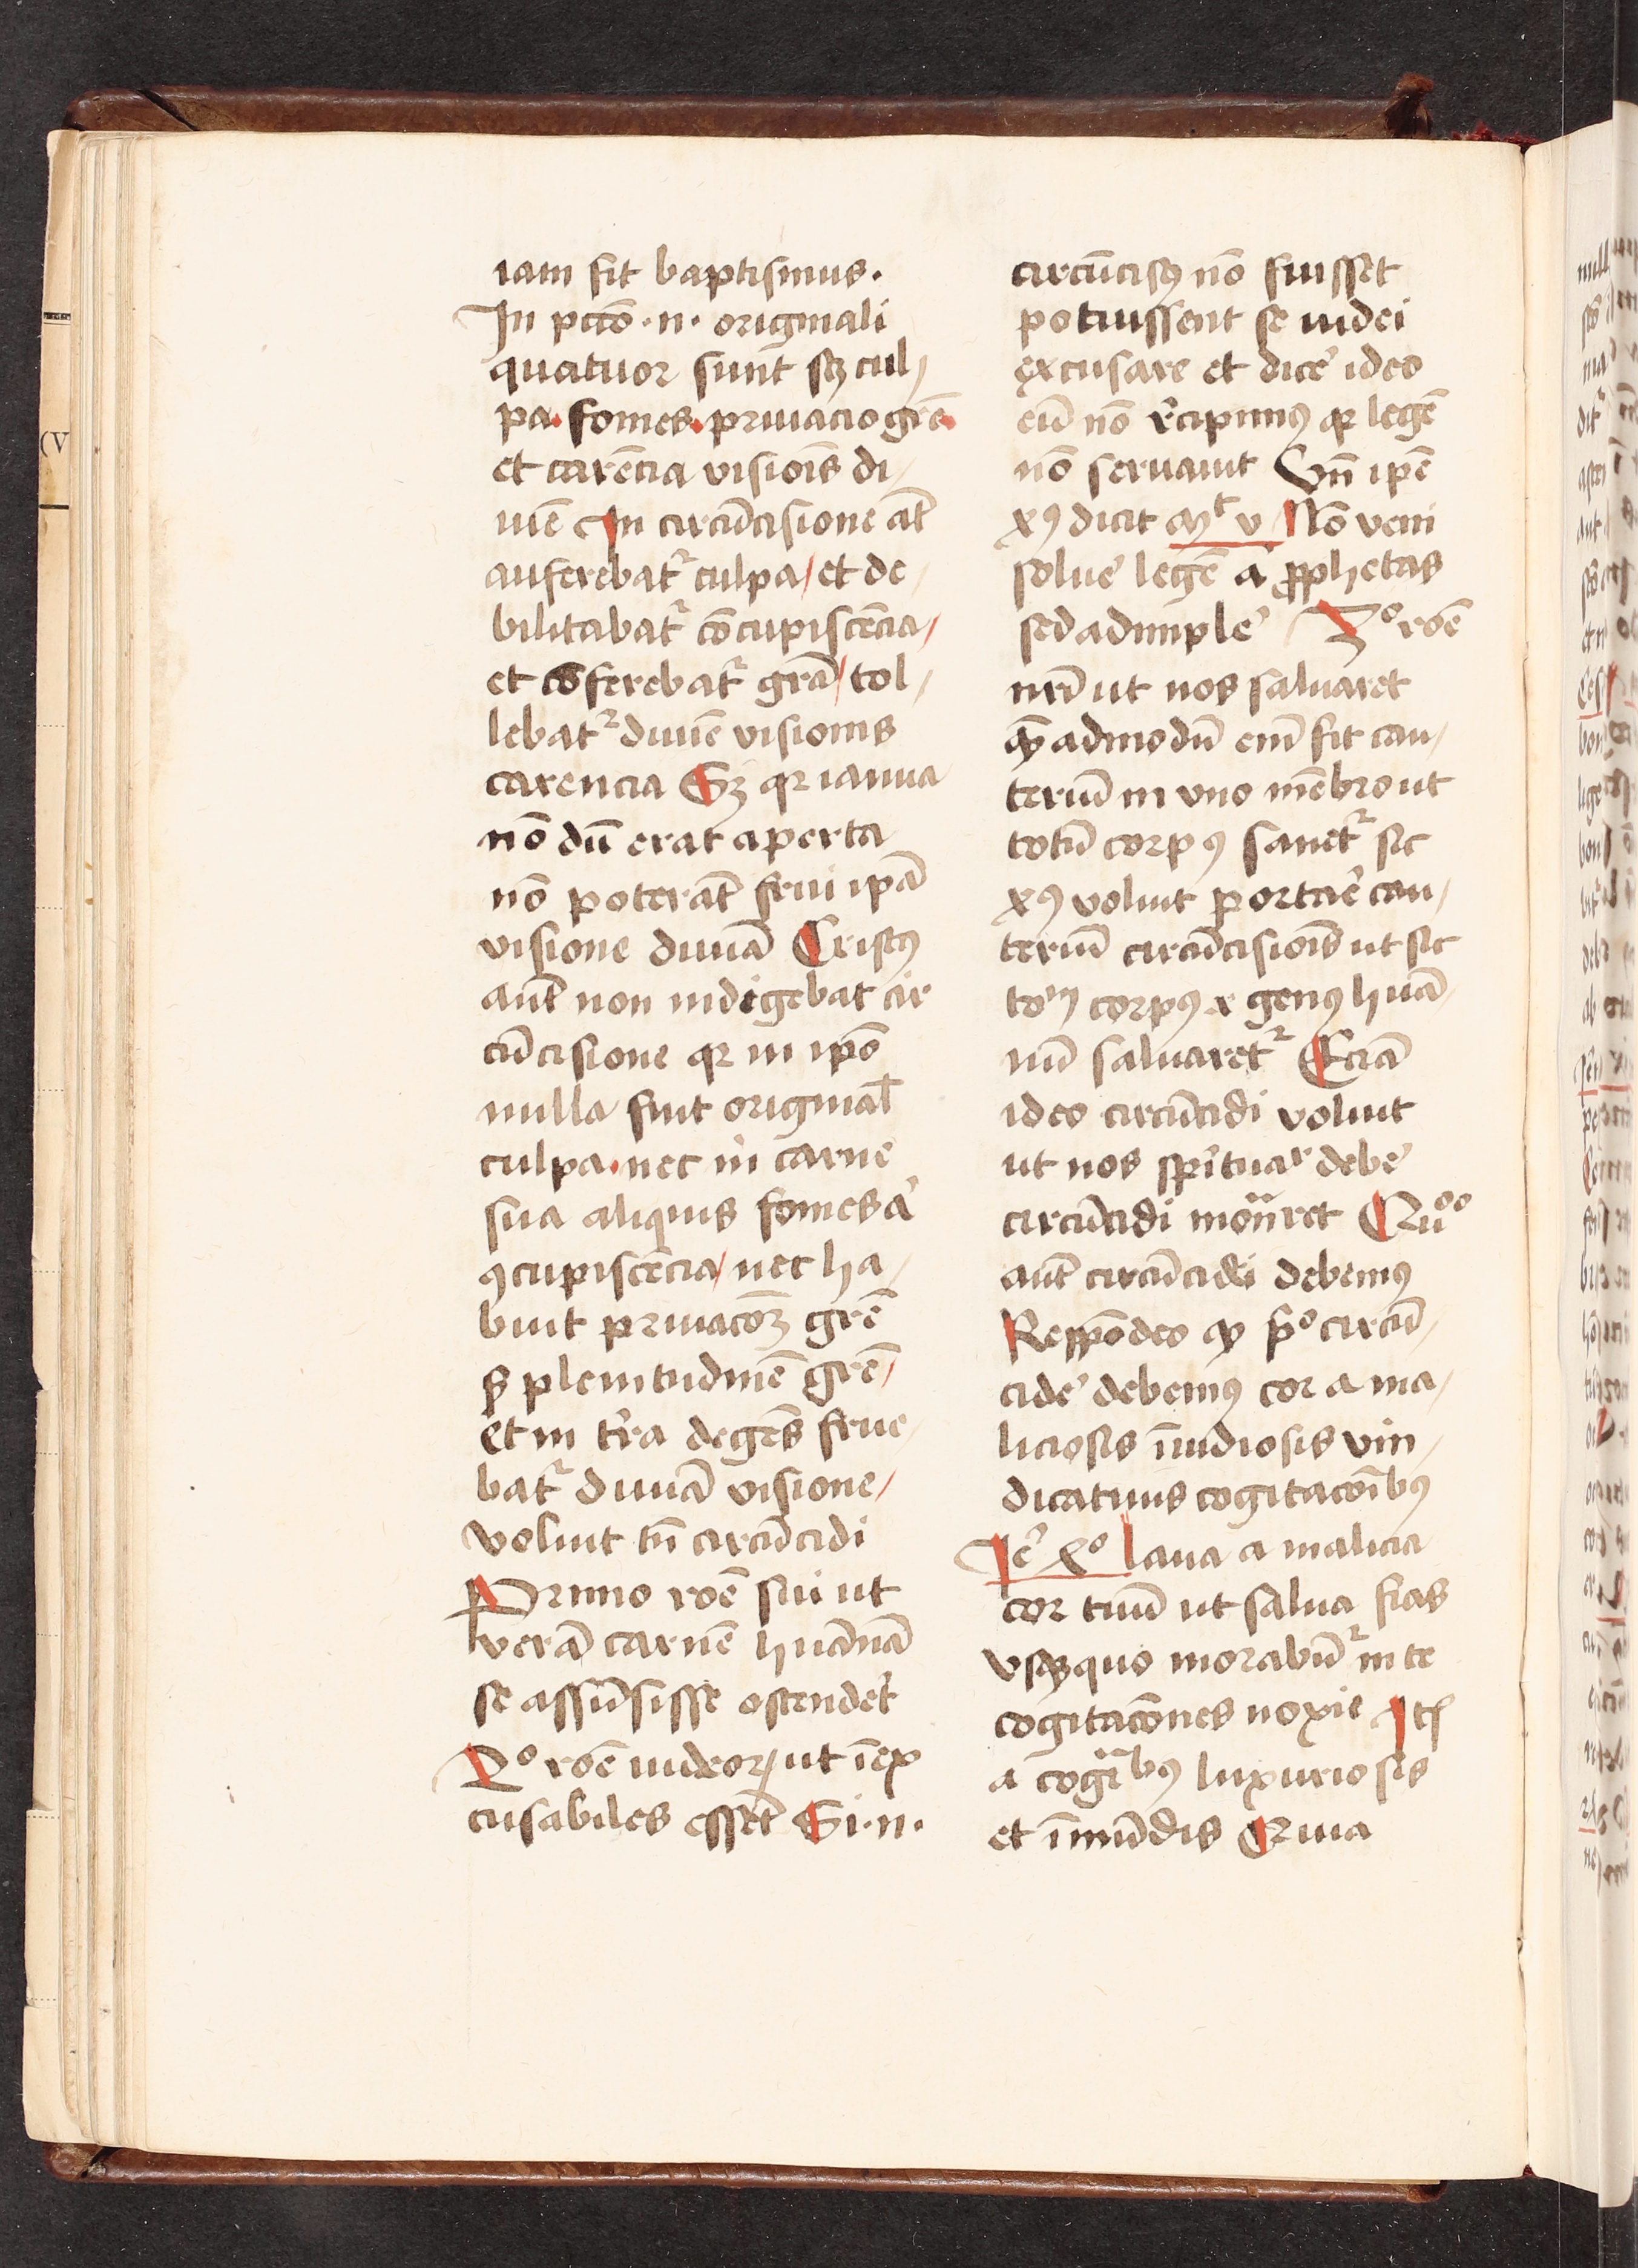 iam fit baptismus.
In pctō .n. originali
quatuor sunt̄ sꝫ cul/
pa. fomes. priuacio grē.
et carēcia visiōis di/
uīe In circūcisione aūt
auferebatᷣ culpa/ et de/
bilitabatᷣ cōcupiscēcia/
et cōferebatᷣ grā/ tol/
lebatᷣ diuīe visionis
carencia Sꝫ qꝛ ianua
nōdū erat aperta
nō poterāt frui ipā
visione diuīa Cristꝯ
aūt non indigebat cir
cūcisione qꝛ in ipō
nulla fuit originał
culpa. nec in carne
sua aliquis fomes a̛
ꝯcupiscēcia/ nec ha/
buit priuacōꝫ grē
ß plenitudinē grē/
et in tr̄a degēs frue/
batᷣ diuīa visione/
voluit tn̄ circūcidi
Primo rōē sui ut
verā carnē huānā
se assūsisse ostendet̄
2º rōē iudeoꝝ ut īex
cusabiles essēt Si .n.
circūcisꝯ nō fuisset
potuissent se iudei
excusare et dicē ideo
eū nō r̄cipimꝯ qꝛ legē
nō seruauit Vn̄ ipē
xꝯ dicit mͭ v Nō veni
soluē legē a̛ ꝓphetas
sed adimplē 3º rōē
nrī ut nos saluaret
qēadmodū em̄ fit cau/
teriū in vno mēbro ut
totū corpꝯ sanetᷣ sic
xꝯ voluit portaē cau/
teriū circūcisiōis ut sic
toᷣꝫ corpꝯ et genꝯ huā/
nū saluaretᷣ Eciā
ideo circūcidi voluit
ut nos spīituaꝉr debē
circūcidi monēret Quºº
aūt circūcidi debemꝯ
Respōdeo qꝫ pº circū/
cidē debemꝯ cor a ma/
liciosis īuidiosis vin/
dicatiuis cogitacōibꝯ
Ieᷓ xº laua a malicia
cor tuū ut salua fias
vsqꝫquo morabūᷣ in te
cogitacōnes noxie Itē
a cogīᵃbꝯ luxuriosis
et īmūdis Quia